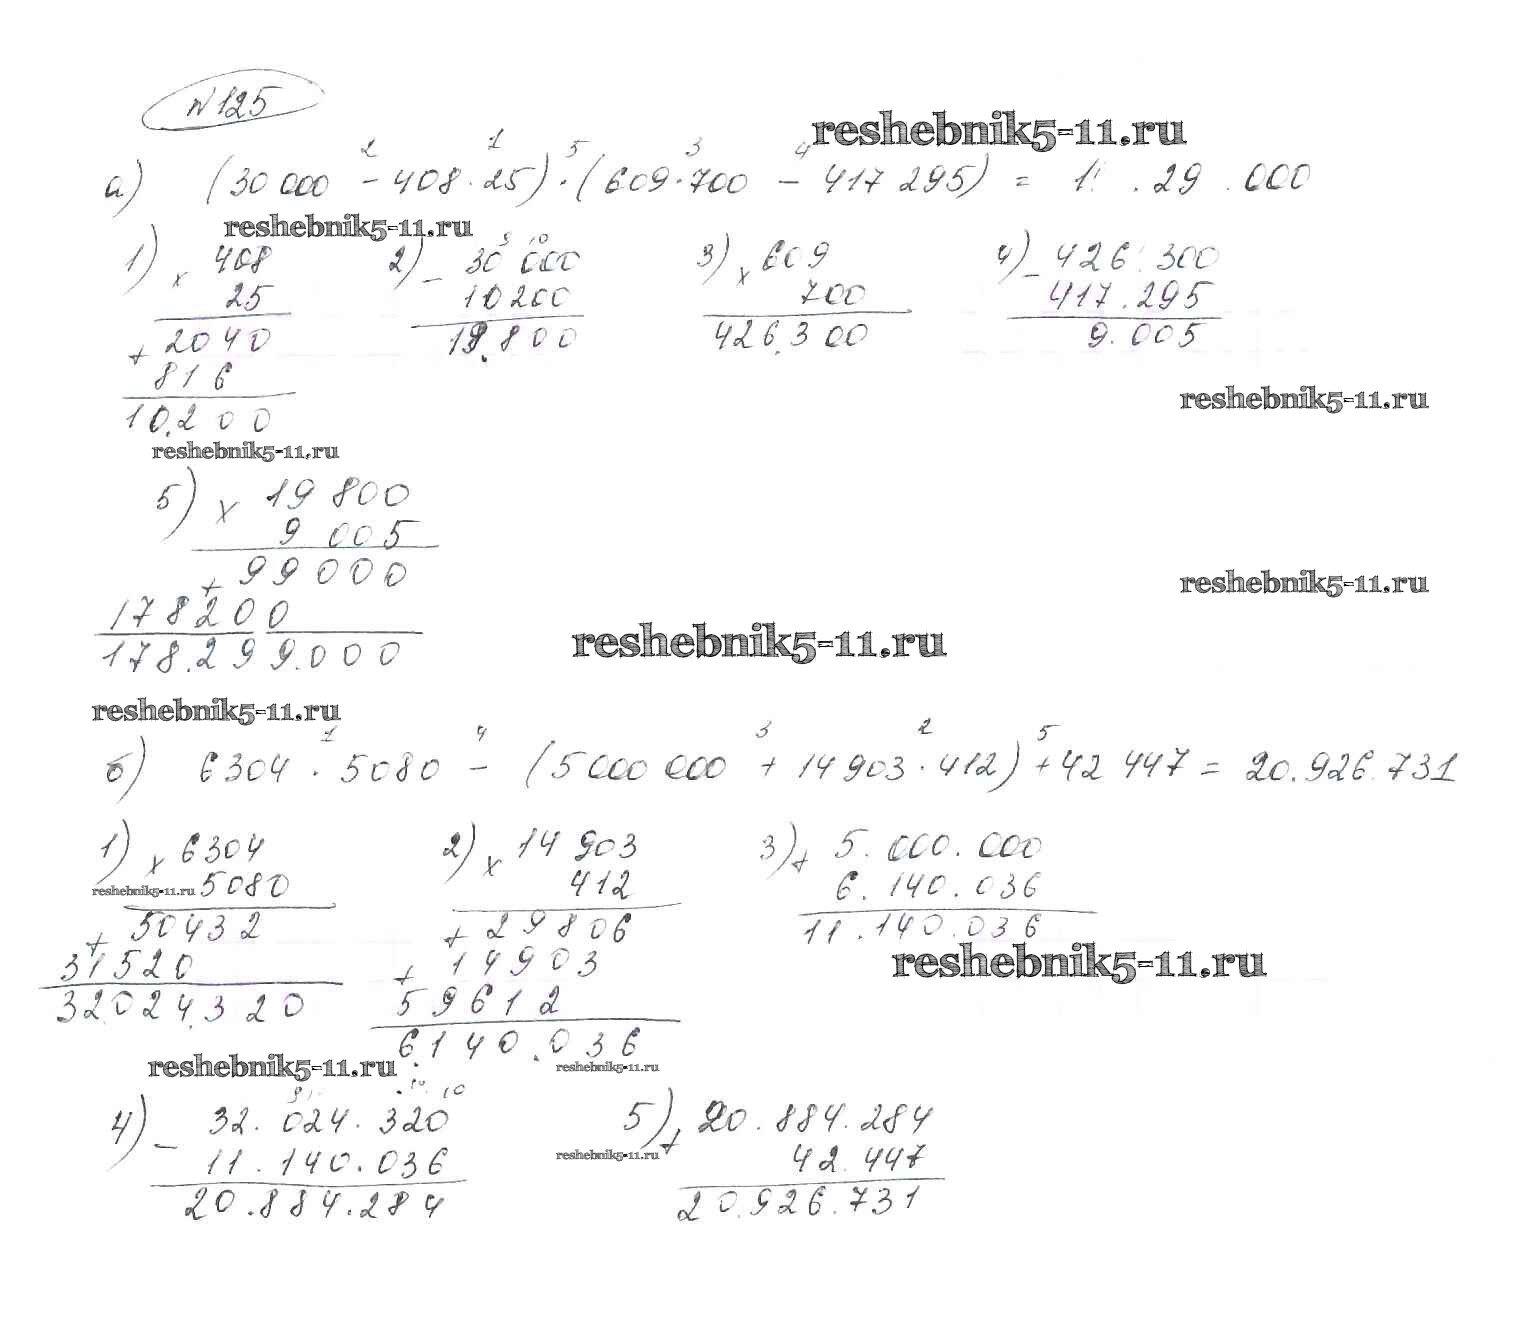 №125
reshebnik5-11.ru
2 1 5 3 4
а) (30 000 - 408 · 25) · (609 · 700 - 417 295) = 1 . 29 . 000
reshebnik5-11.ru
1) × 408
25
+ 2040
816
10.200
9 10
2) - 30 000
10 200
19.800
3) × 609
700
426.300
4) - 426 300
417.295
9.005
reshebnik5-11.ru
reshebnik5-11.ru
5) × 19 800
9 005
+ 99000
178200
178.299.000
reshebnik5-11.ru
reshebnik5-11.ru
reshebnik5-11.ru
1 4 3 2 5
б) 6304 · 5080 - (5 000 000 + 14 903 · 412) + 42 447 = 20.926.731
1) × 6304
reshebnik5-11.ru 5080
+ 50432
31520
32.024.320
2) × 14 903
412
+ 29806
+ 14903
59612
6.140.036
3) + 5.000.000
6.140.036
11.140.036
reshebnik5-11.ru
reshebnik5-11.ru
reshebnik5-11.ru
4) - 32.024.320
11.140.036
20.884.284
5) + 20.884.284
reshebnik5-11.ru 42.447
20.926.731